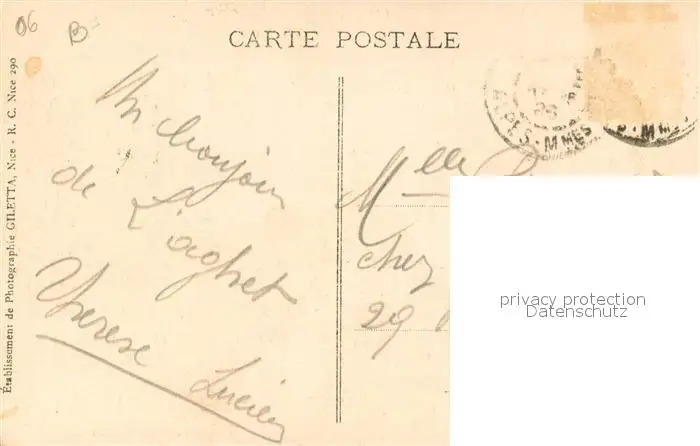 06 B
CARTE POSTALE
Établissement de Photographie GILETTA, Nice - R. C. Nice 290
Un bonjour
de Laghet
Therese Lucien
ALPES - MMES
Mlle
Chez
29
privacy protection
Datenschutz